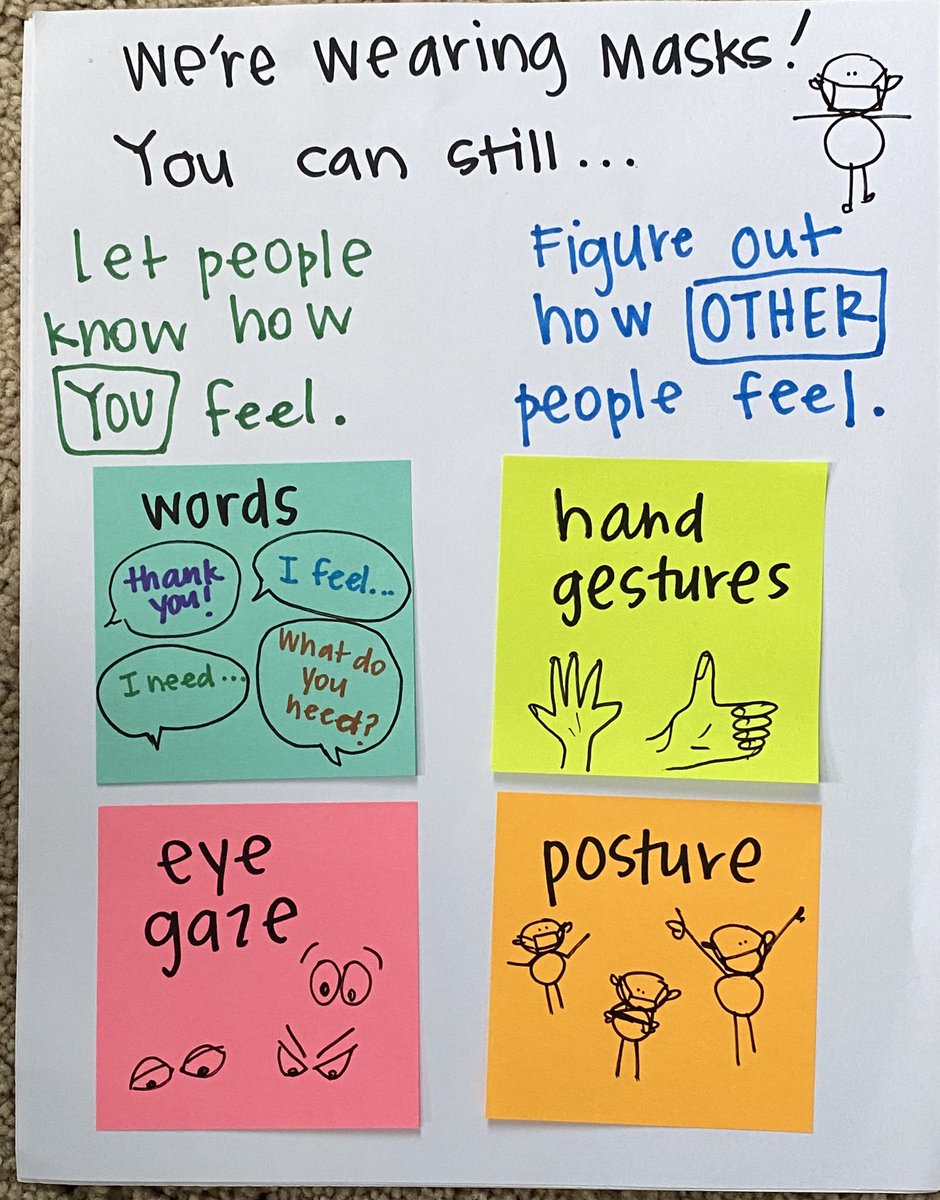 We're wearing masks!
You can still...
Let people
know how
YOU feel.
Figure out
how OTHER
people feel.
words
thank
you!
I feel...
I need...
What do
you
need?
hand
gestures
eye
gaze
posture